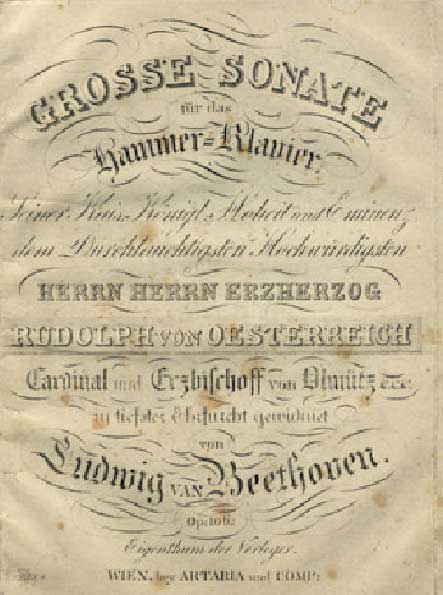 GROSSE SONATE
für das
Hammer-Klavier
Seiner Kais. Königl. Hoheit und Eminenz
dem Durchlauchtigsten Hochwürdigsten
HERRN HERRN ERZHERZOG
RUDOLPH VON OESTERREICH
Cardinal und Erzbischoff von Olmütz &c.&c.
in tiefster Ehrfurcht gewidmet
von
Ludwig VAN Beethoven.
Op: 106.
Eigenthum der Verleger.
WIEN, bey ARTARIA und COMP: